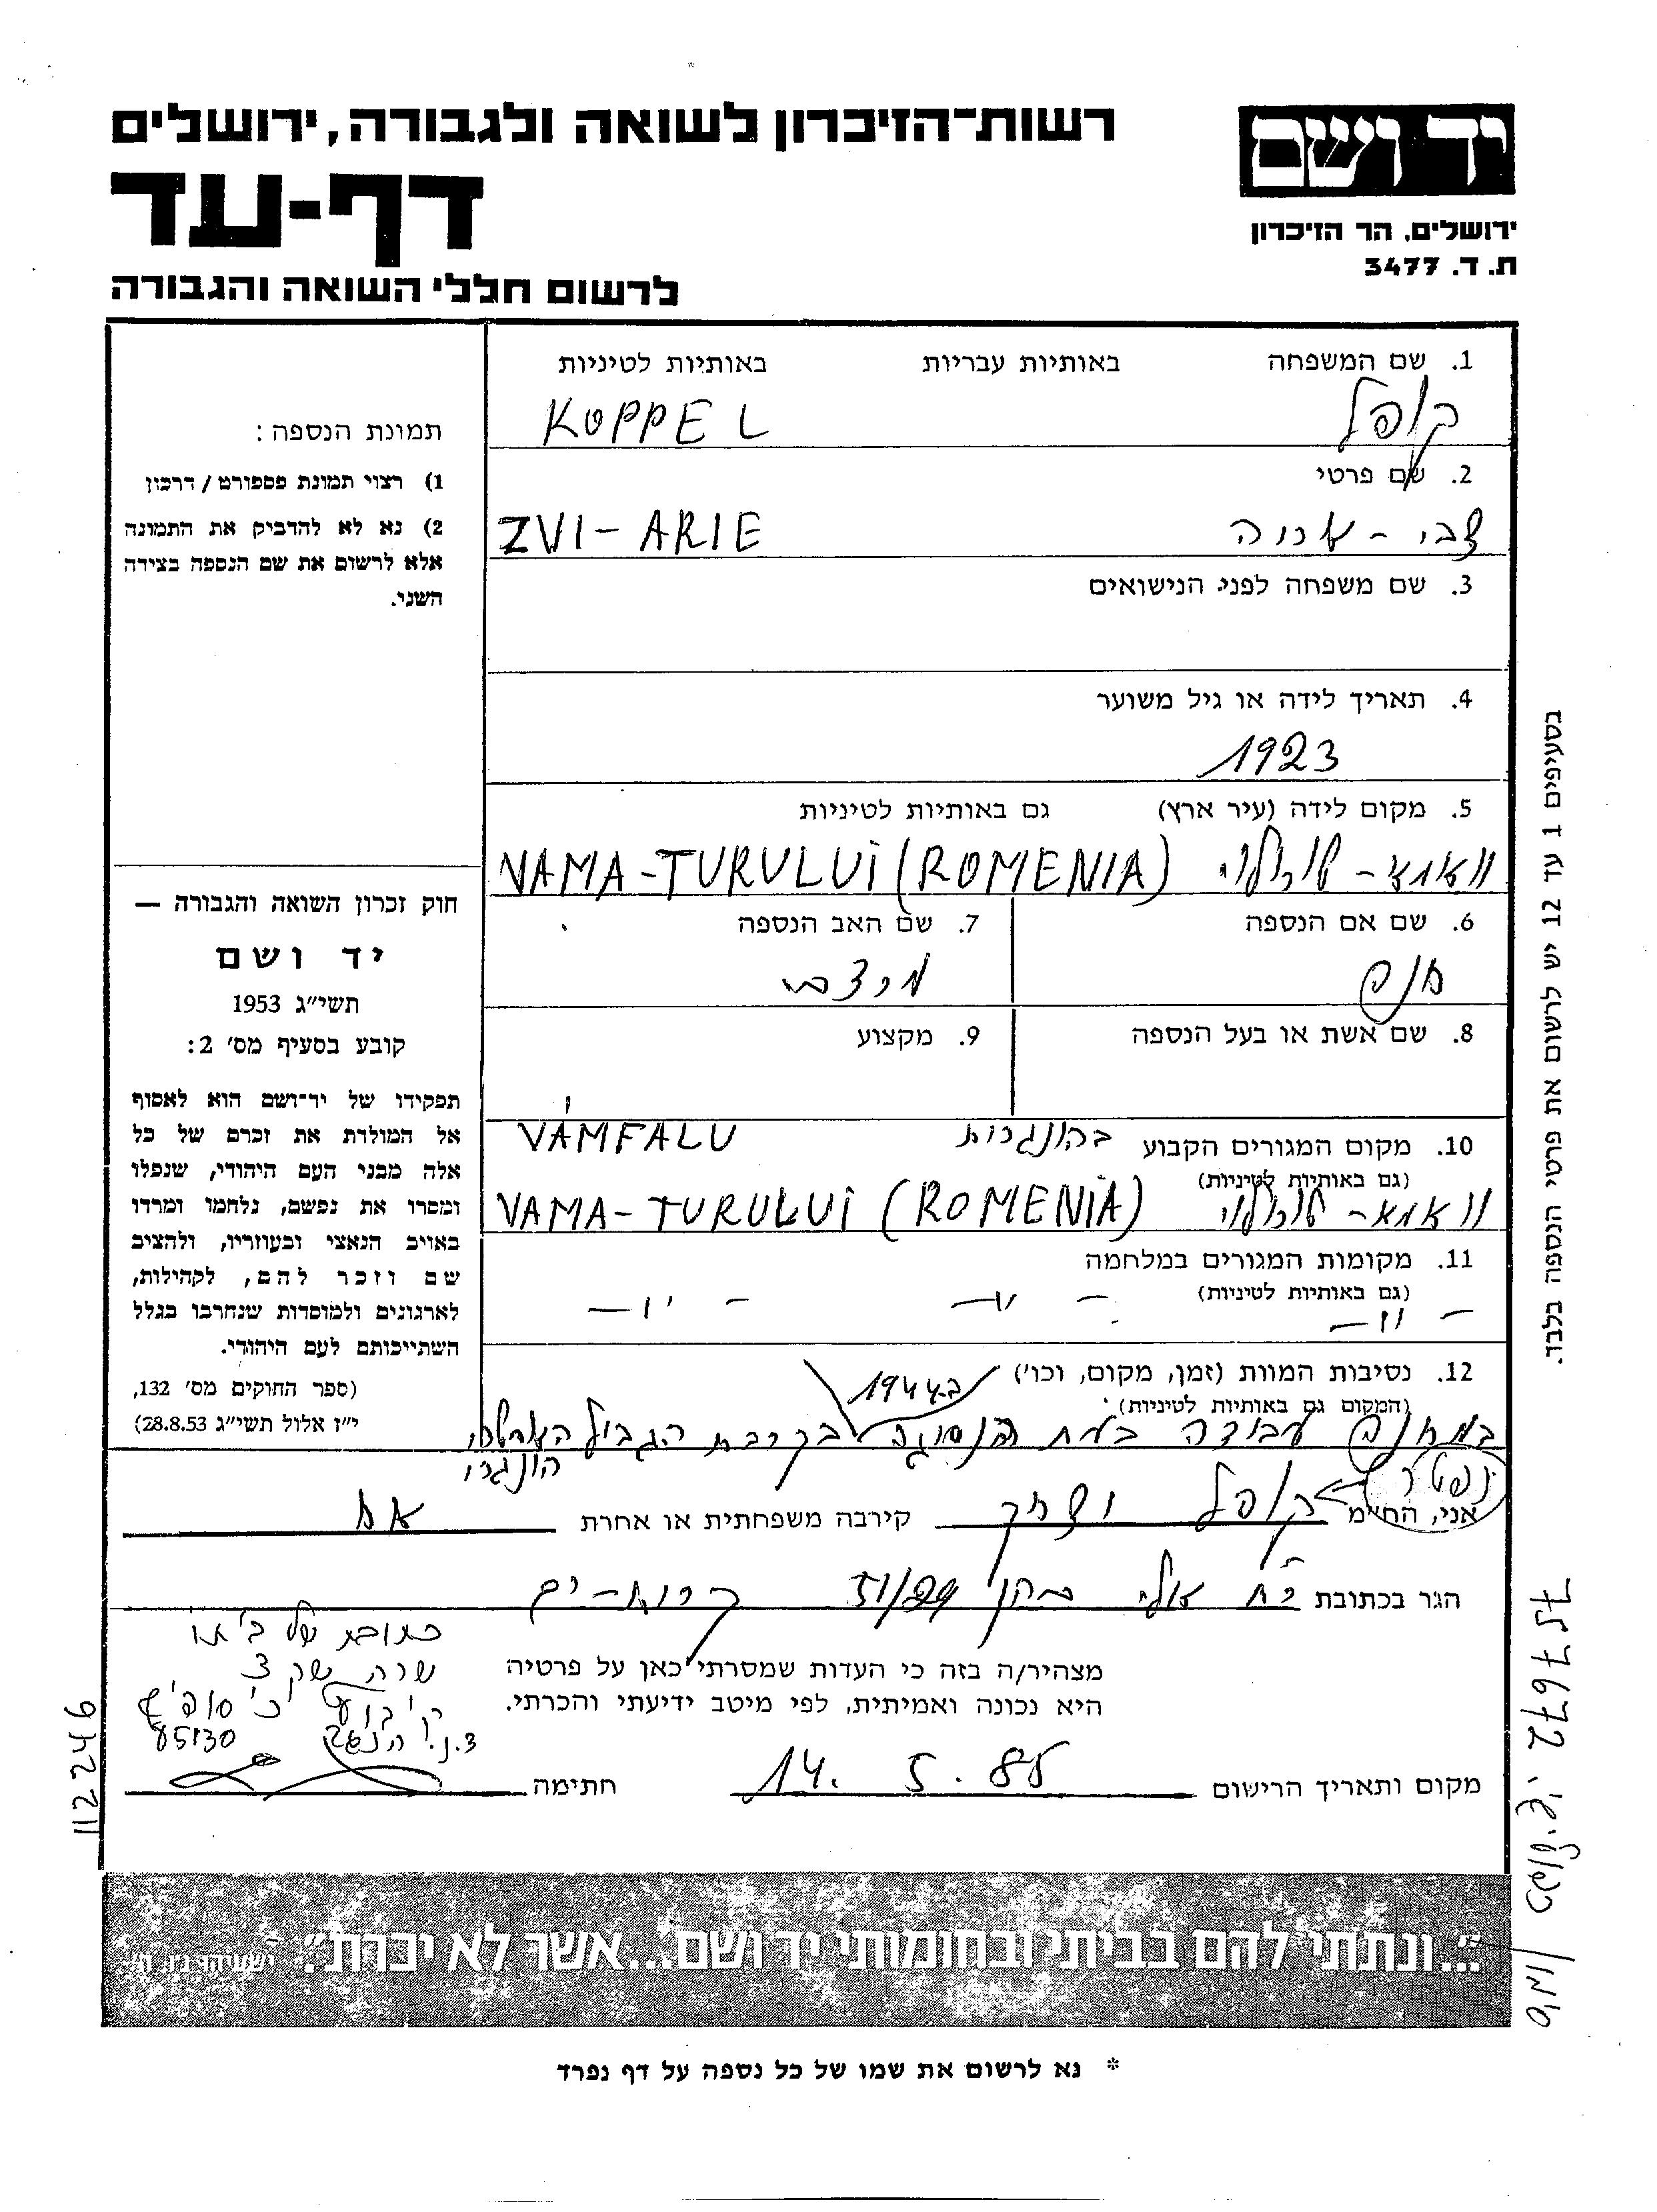 רשות־הזיכרון לשואה ולגבורה, ירושלים
יד ושם
דף-עד
ירושלים, הר הזיכרון
ת. ד. 3477
לרשום חללי השואה והגבורה
1. שם המשפחה באותיות עבריות באותיות לטיניות
קופל KOPPEL
2. שם פרטי
צבי - אריה ZVI - ARIE
3. שם משפחה לפני הנישואים
4. תאריך לידה או גיל משוער
1923
5. מקום לידה (עיר ארץ) גם באותיות לטיניות
וואמא - טורולוי VAMA - TURULUI (ROMENIA)
6. שם אם הנספה 7. שם האב הנספה
8. שם אשת או בעל הנספה 9. מקצוע
10. מקום המגורים הקבוע בהונגרית VÁMFALU
(גם באותיות לטיניות)
וואמא - טורולוי VAMA - TURULUI (ROMENIA)
11. מקומות המגורים במלחמה
(גם באותיות לטיניות)
- " - - " - - " -
12. נסיבות המוות (זמן, מקום, וכו')
(המקום גם באותיות לטיניות)
ב 1944
במחנה עבודה בעת הנסיגה בקרבת הגבול האוסטרי
הונגרי
נפטר
אני, הח"מ קופל יצחק קירבה משפחתית או אחרת אח
הגר בכתובת 51/29
כתובת של בתו
שרה
קיבוץ
85130
מצהיר/ה בזה כי העדות שמסרתי כאן על פרטיה
היא נכונה ואמיתית, לפי מיטב ידיעתי והכרתי.
מקום ותאריך הרישום 14. 5. 85 חתימה
תמונת הנספה:
1) רצוי תמונת פספורט / דרכון
2) נא לא להדביק את התמונה
אלא לרשום את שם הנספה בצידה
השני.
חוק זכרון השואה והגבורה —
יד ושם
תשי"ג 1953
קובע בסעיף מס' 2:
תפקידו של יד־ושם הוא לאסוף
אל המולדת את זכרם של כל
אלה מבני העם היהודי, שנפלו
ומסרו את נפשם, נלחמו ומרדו
באויב הנאצי ובעוזריו, ולהציב
שם וזכר להם, לקהילות,
לארגונים ולמוסדות שנחרבו בגלל
השתייכותם לעם היהודי.
(ספר החוקים מס' 132,
י"ז אלול תשי"ג 28.8.53)
בסעיפים 1 עד 12 יש לרשום את פרטי הנספה בלבד.
112246
"...ונתתי להם בביתי ובחומותי יד ושם...אשר לא יכרת". ישעיהו נ"ו, ה'
* נא לרשום את שמו של כל נספה על דף נפרד